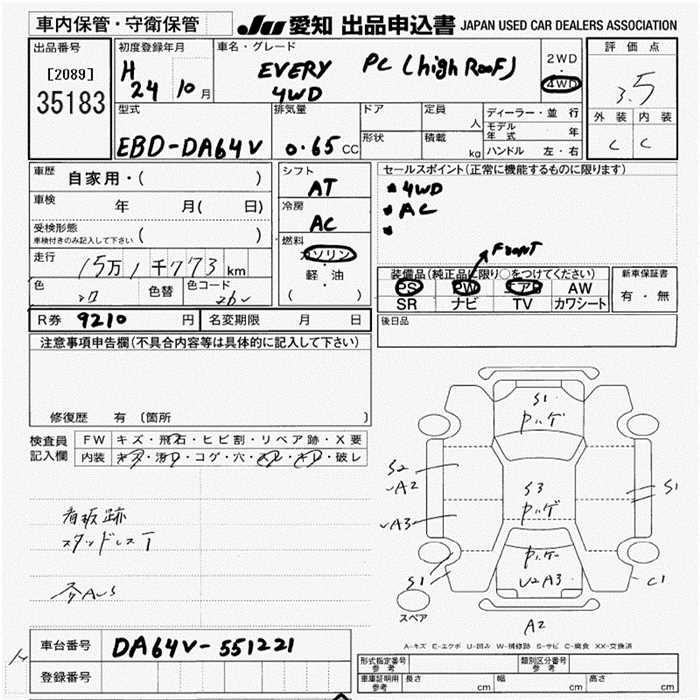 車内保管・守衛保管 JU 愛知 出品申込書 JAPAN USED CAR DEALERS ASSOCIATION
出品番号
[2089]
35183
初度登録年月
H
24 10 月
車名・グレード
EVERY PC (high Roof)
4WD
2WD
・
4WD
評価点
3.5
外装 内装
C C
型式
EBD-DA64V
排気量
0.65 CC
ドア
形状
定員
人
積載
kg
ディーラー・並行
モデル年式 年
ハンドル 左・右
車歴
自家用・( )
車検
年 月( 日)
受検形態
車検付きのみ記入して下さい ( )
走行
15万1千773 km
色 色替 色コード
26U
シフト
AT
冷房
AC
燃料
ガソリン
・
軽・油
( )
セールスポイント(正常に機能するものに限ります)
● 4WD
● AC
●
Front
装備品(純正品に限り○をつけてください)
PS PW エアB AW
SR ナビ TV カワシート
新車保証書
有・無
後日品
R券 9210 円 名変期限 月 日
注意事項申告欄(不具合内容等は具体的に記入して下さい)
修復歴 有 (箇所 )
検査員
記入欄
FW キズ・飛石・ヒビ割・リペア跡・X要
内装 キズ・汚れ・コゲ・穴・スレ・キレ・破レ
看板跡
スタッドレスT
S1
ｸﾊｹﾞ
S2
UA2
S3
ｸﾊｹﾞ
S1
UA3
U2A3
S1
C1
スペア
A2
A-キズ E-エクボ U-凹み W-補修跡 S-サビ C-腐食 XX-交換済
車台番号 DA64V-551221
登録番号
形式指定番号
参考
類別区分番号
参考
車庫証明用
参考
長さ cm 幅 cm 高さ cm